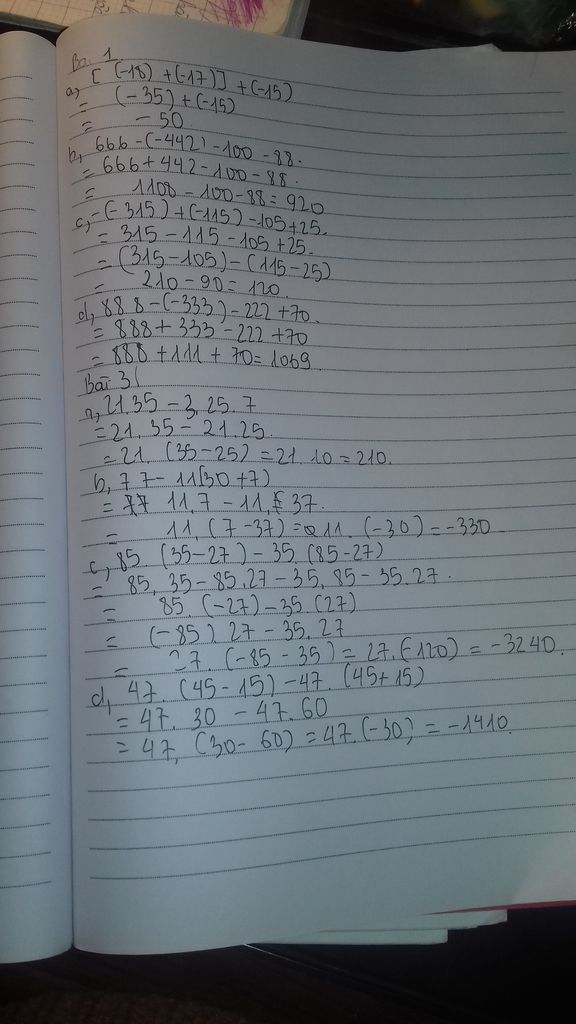 Bài 1
a, [ (-18) + (-17) ] + (-15)
= (-35) + (-15)
= -50
b, 666 - (-442) - 100 - 88.
= 666 + 442 - 100 - 88.
= 1108 - 100 - 88 = 920
c, -(-315) + (-115) - 105 + 25.
= 315 - 115 - 105 + 25.
= (315 - 105) - (115 - 25)
= 210 - 90 = 120.
d, 888 - (-333) - 222 + 70.
= 888 + 333 - 222 + 70
= 888 + 111 + 70 = 1069
Bài 3
a, 21.35 - 3.25.7
= 21.35 - 21.25.
= 21 (35 - 25) = 21.10 = 210.
b, 77 - 11(30 + 7)
= 11.7 - 11. 37.
= 11. (7 - 37) = 11. (-30) = -330
c, 85. (35 - 27) - 35. (85 - 27)
= 85.35 - 85.27 - 35.85 - 35.27.
= 85. (-27) - 35. (27)
= (-85) 27 - 35.27
= 27. (-85 - 35) = 27. (-120) = -3240.
d, 47. (45 - 15) - 47. (45 + 15)
= 47. 30 - 47. 60
= 47. (30 - 60) = 47. (-30) = -1410.